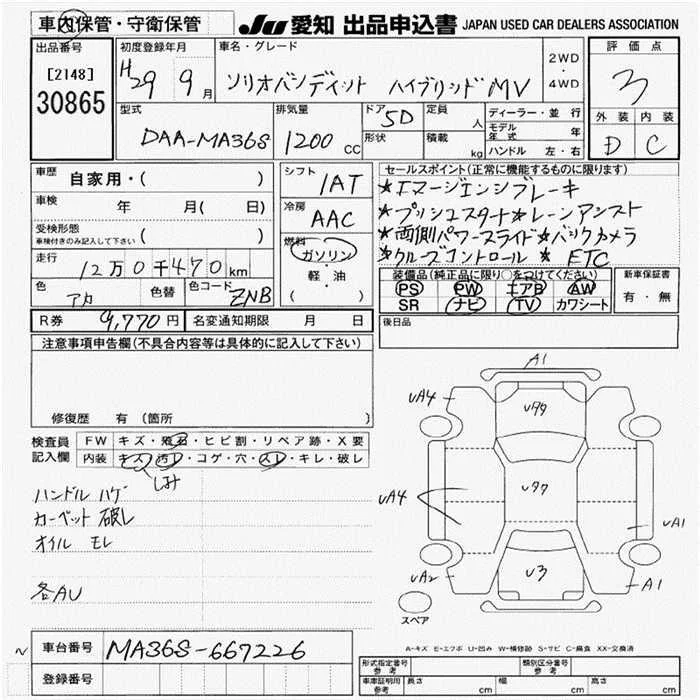 車内保管・守衛保管
JU 愛知 出品申込書 JAPAN USED CAR DEALERS ASSOCIATION
出品番号 初度登録年月 車名・グレード 2WD・4WD 評価点
[2148] H29年9月 ソリオバンディット ハイブリッドMV 3
30865
型式 排気量 ドア 5D 定員 人 ディーラー・並行 外装 内装
DAA-MA36S 1200cc 形状 積載 kg モデル年式 年 D C
ハンドル 左・右
車歴 自家用・( ) シフト 1AT セールスポイント(正常に機能するものに限ります)
車検 年 月( 日) 冷房 AAC ★エマージエンシブレーキ
受検形態 ★プッシュスタート★レーンアシスト
車検付きのみ記入して下さい ( ) 燃料 ガソリン ★両側パワースライド★バックカメラ
走行 12万0千470km 軽・油 ★クルーズコントロール ★ETC
色 アカ 色替 色コード ZNB ( ) 装備品(純正品に限り○をつけてください) 新車保証書
PS PW エアB AW 有・無
SR ナビ TV カワシート
R券 9,770円 名変通知期限 月 日 後日品
注意事項申告欄(不具合内容等は具体的に記入して下さい)
修復歴 有 (箇所 )
検査員記入欄 FW キズ・飛石・ヒビ割・リペア跡・X要
内装 キズ・汚レ・コゲ・穴・スレ・キレ・破レ
しみ
ハンドル ハゲ
カーペット 破レ
オイル モレ
各AU
A1
UA4
U99
U97
UA4
UA1
UA2
U3
A1
スペア
A-キズ E-エクボ U-凹み W-補修跡 S-サビ C-腐食 XX-交換済
車台番号 MA36S-667226
登録番号
形式指定番号 参考 類別区分番号 参考
車庫証明用 参考 長さ cm 幅 cm 高さ cm